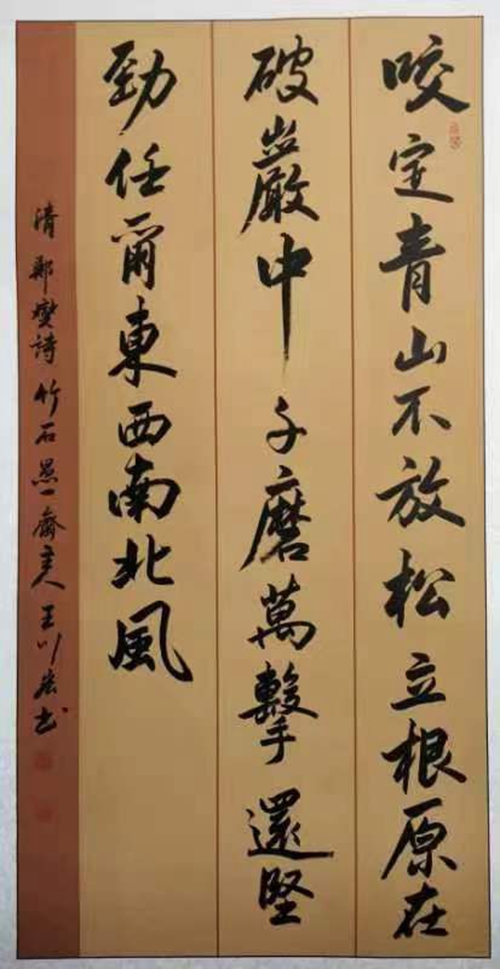 咬定青山不放松立根原在
破巖中千磨萬擊還堅
勁任爾東西南北風
清鄭燮詩竹石愚一齋主人王川宏书